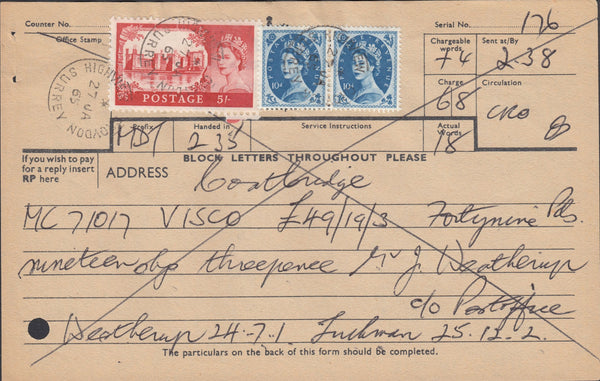 Counter No. Serial No. 176
Office Stamp Chargeable words 74 Sent at/By 2.38
POSTAGE 5/- 10D 10D Charge 68 Circulation CRO
CROYDON SURREY 27 JA 65
Prefix MDT Handed in 235 Service Instructions Actual Words 18
If you wish to pay for a reply insert RP here
BLOCK LETTERS THROUGHOUT PLEASE
ADDRESS Coatbridge
MC 71017 VISCO £49/19/3 Fortynine Pds
nineteen threepence Mr J. Weatherup
c/o Postoffice
Weatherup 24-7-1. 25.12.2.
The particulars on the back of this form should be completed.